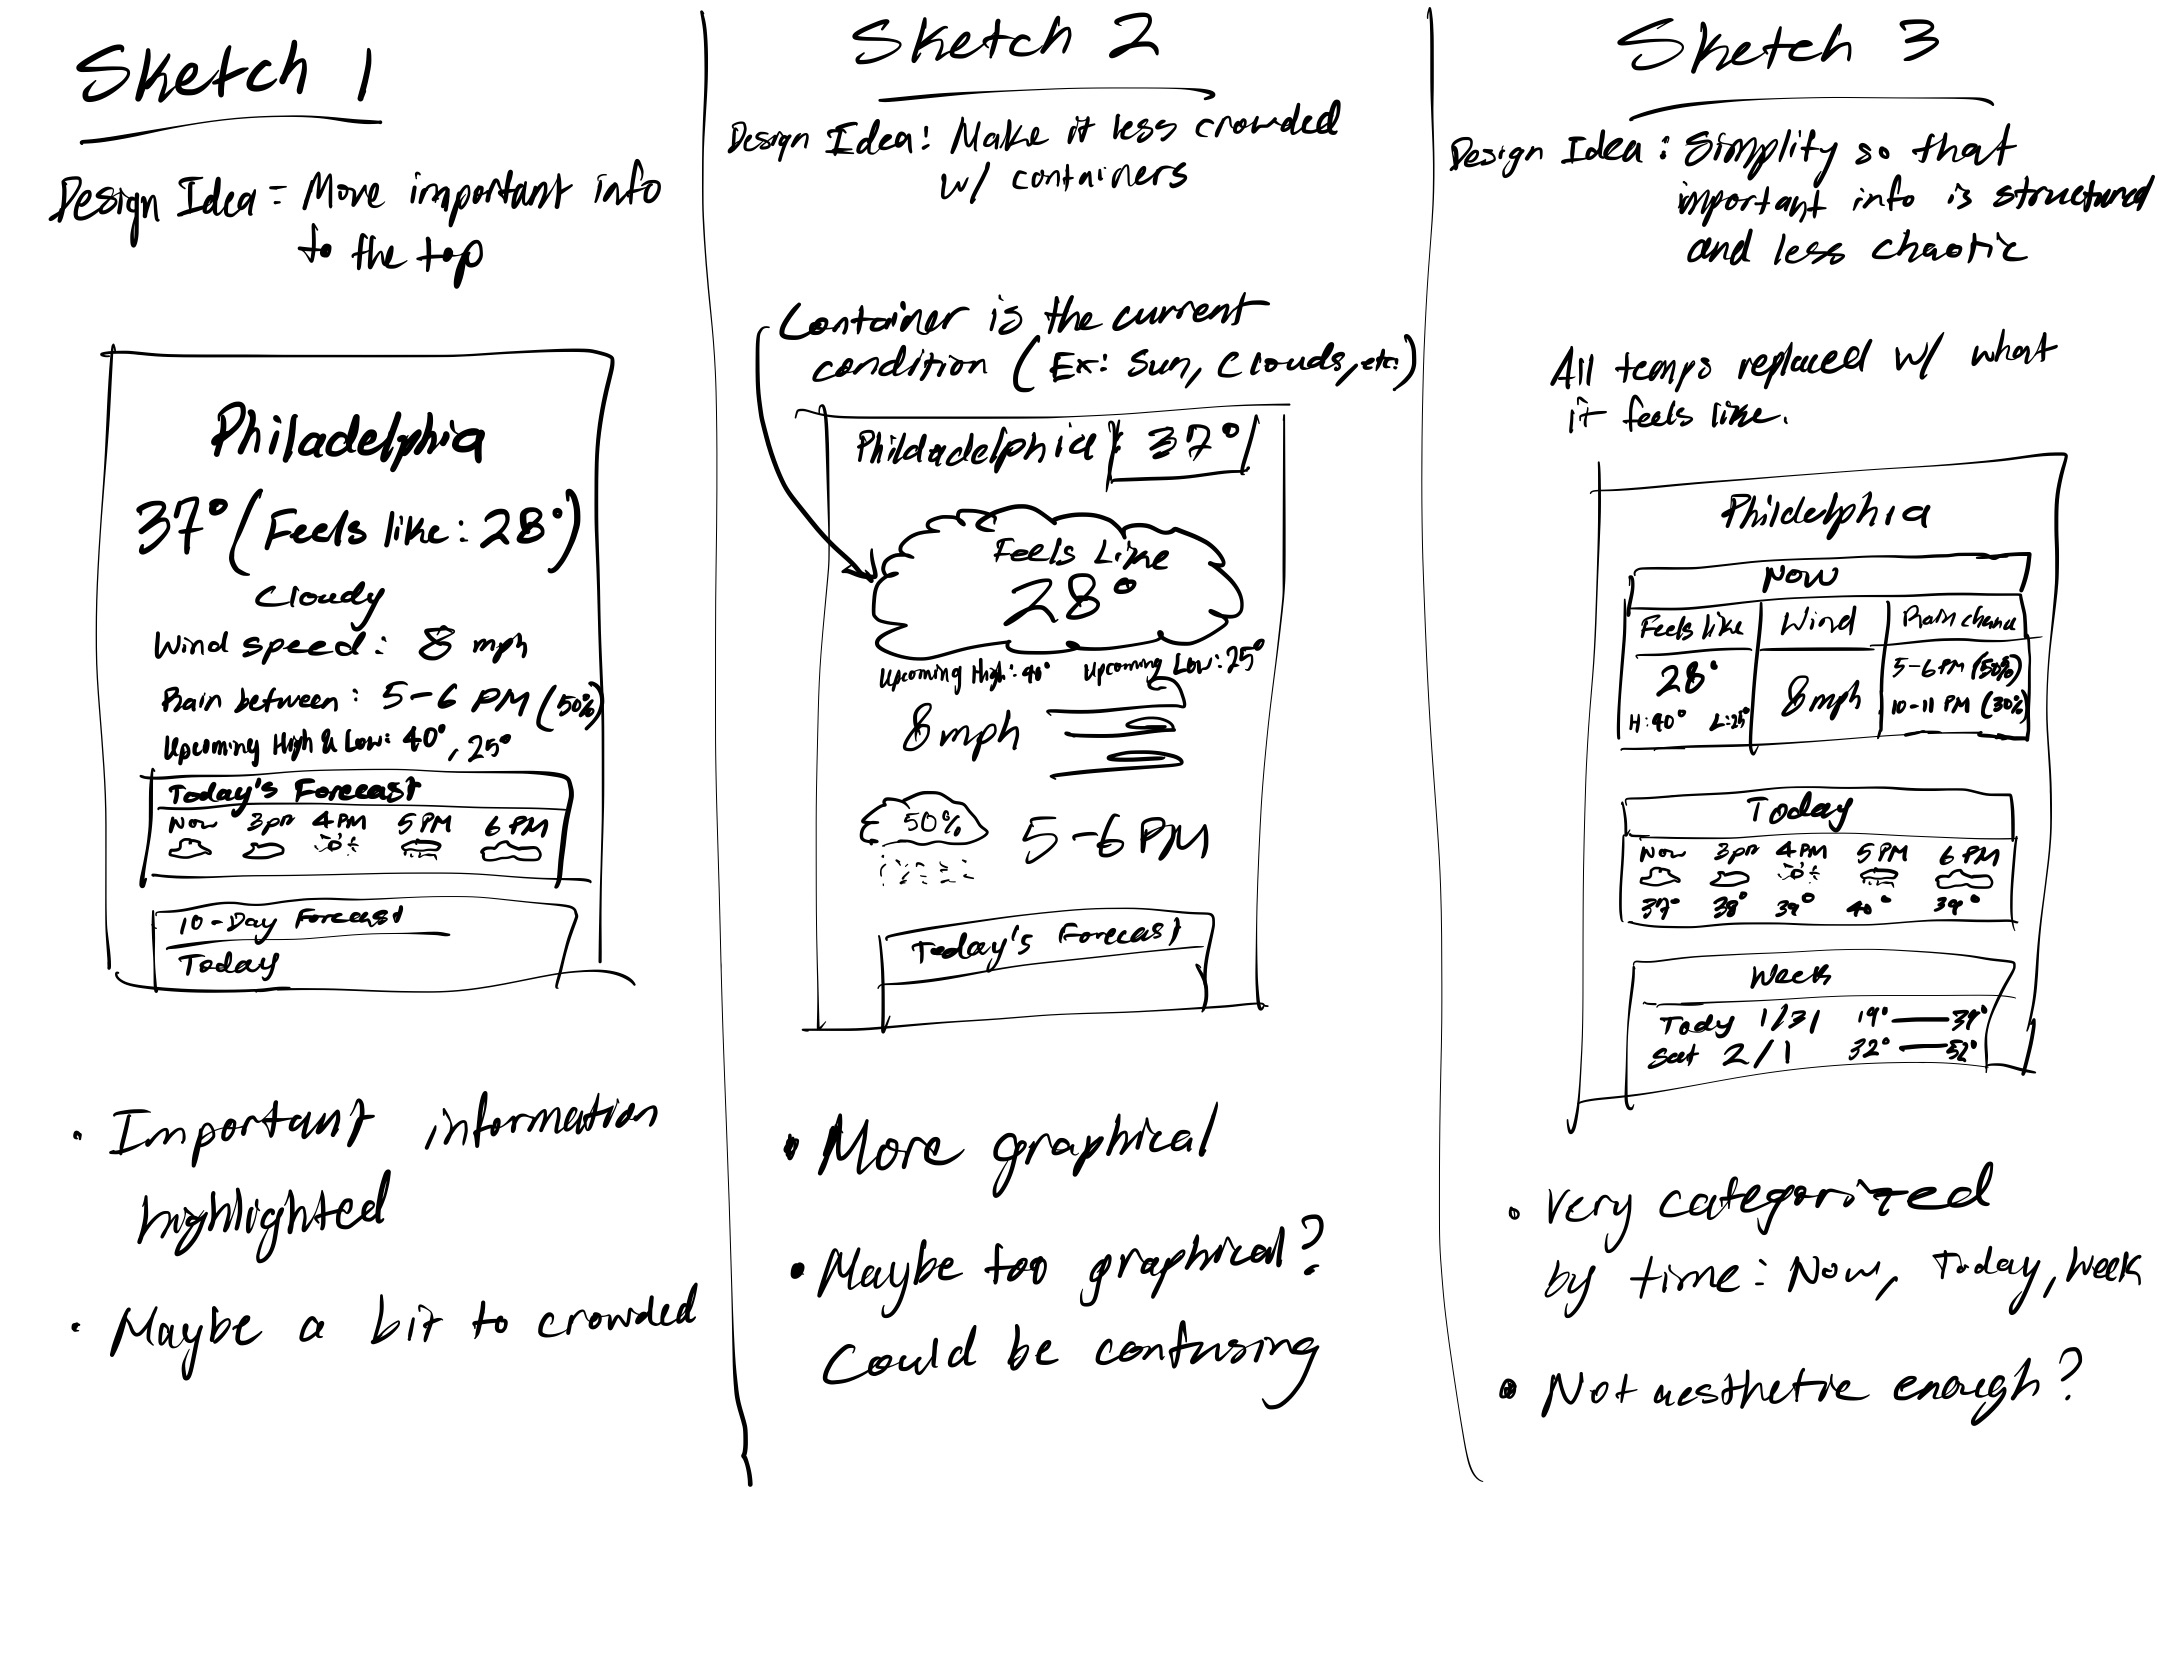 Sketch 1
Design Idea = Move important info
to the top
Philadelphia
37° (Feels like: 28°)
Cloudy
Wind speed: 8 mph
Rain between: 5-6 PM (50%)
Upcoming High & Low: 40°, 25°
Today's Forecast
Now 3pm 4PM 5PM 6PM
10-Day Forecast
Today
• Important information
highlighted
• Maybe a bit to crowded
Sketch 2
Design Idea! Make it less crowded
w/ containers
Container is the current
condition (Ex: Sun, Clouds, etc.)
Phildadelphia: 37°
Feels Like
28°
Upcoming High: 40° Upcoming Low: 25°
8 mph
50% 5-6 PM
Today's Forecast
• More graphical
• Maybe too graphical?
Could be confusing
Sketch 3
Design Idea: Simplify so that
important info is structured
and less chaotic
All temps replaced w/ what
it feels like.
Phildelphia
Now
Feels like Wind Rain chance
28° 8mph 5-6 PM (50%)
H:40° L:25° 10-11 PM (30%)
Today
Now 3pm 4PM 5PM 6PM
37° 38° 39° 40° 39°
Week
Tody 1/31 19° — 39°
Sat 2/1 32° — 52°
• Very categorized
by time: Now, Today, Week
• Not aesthetic enough?